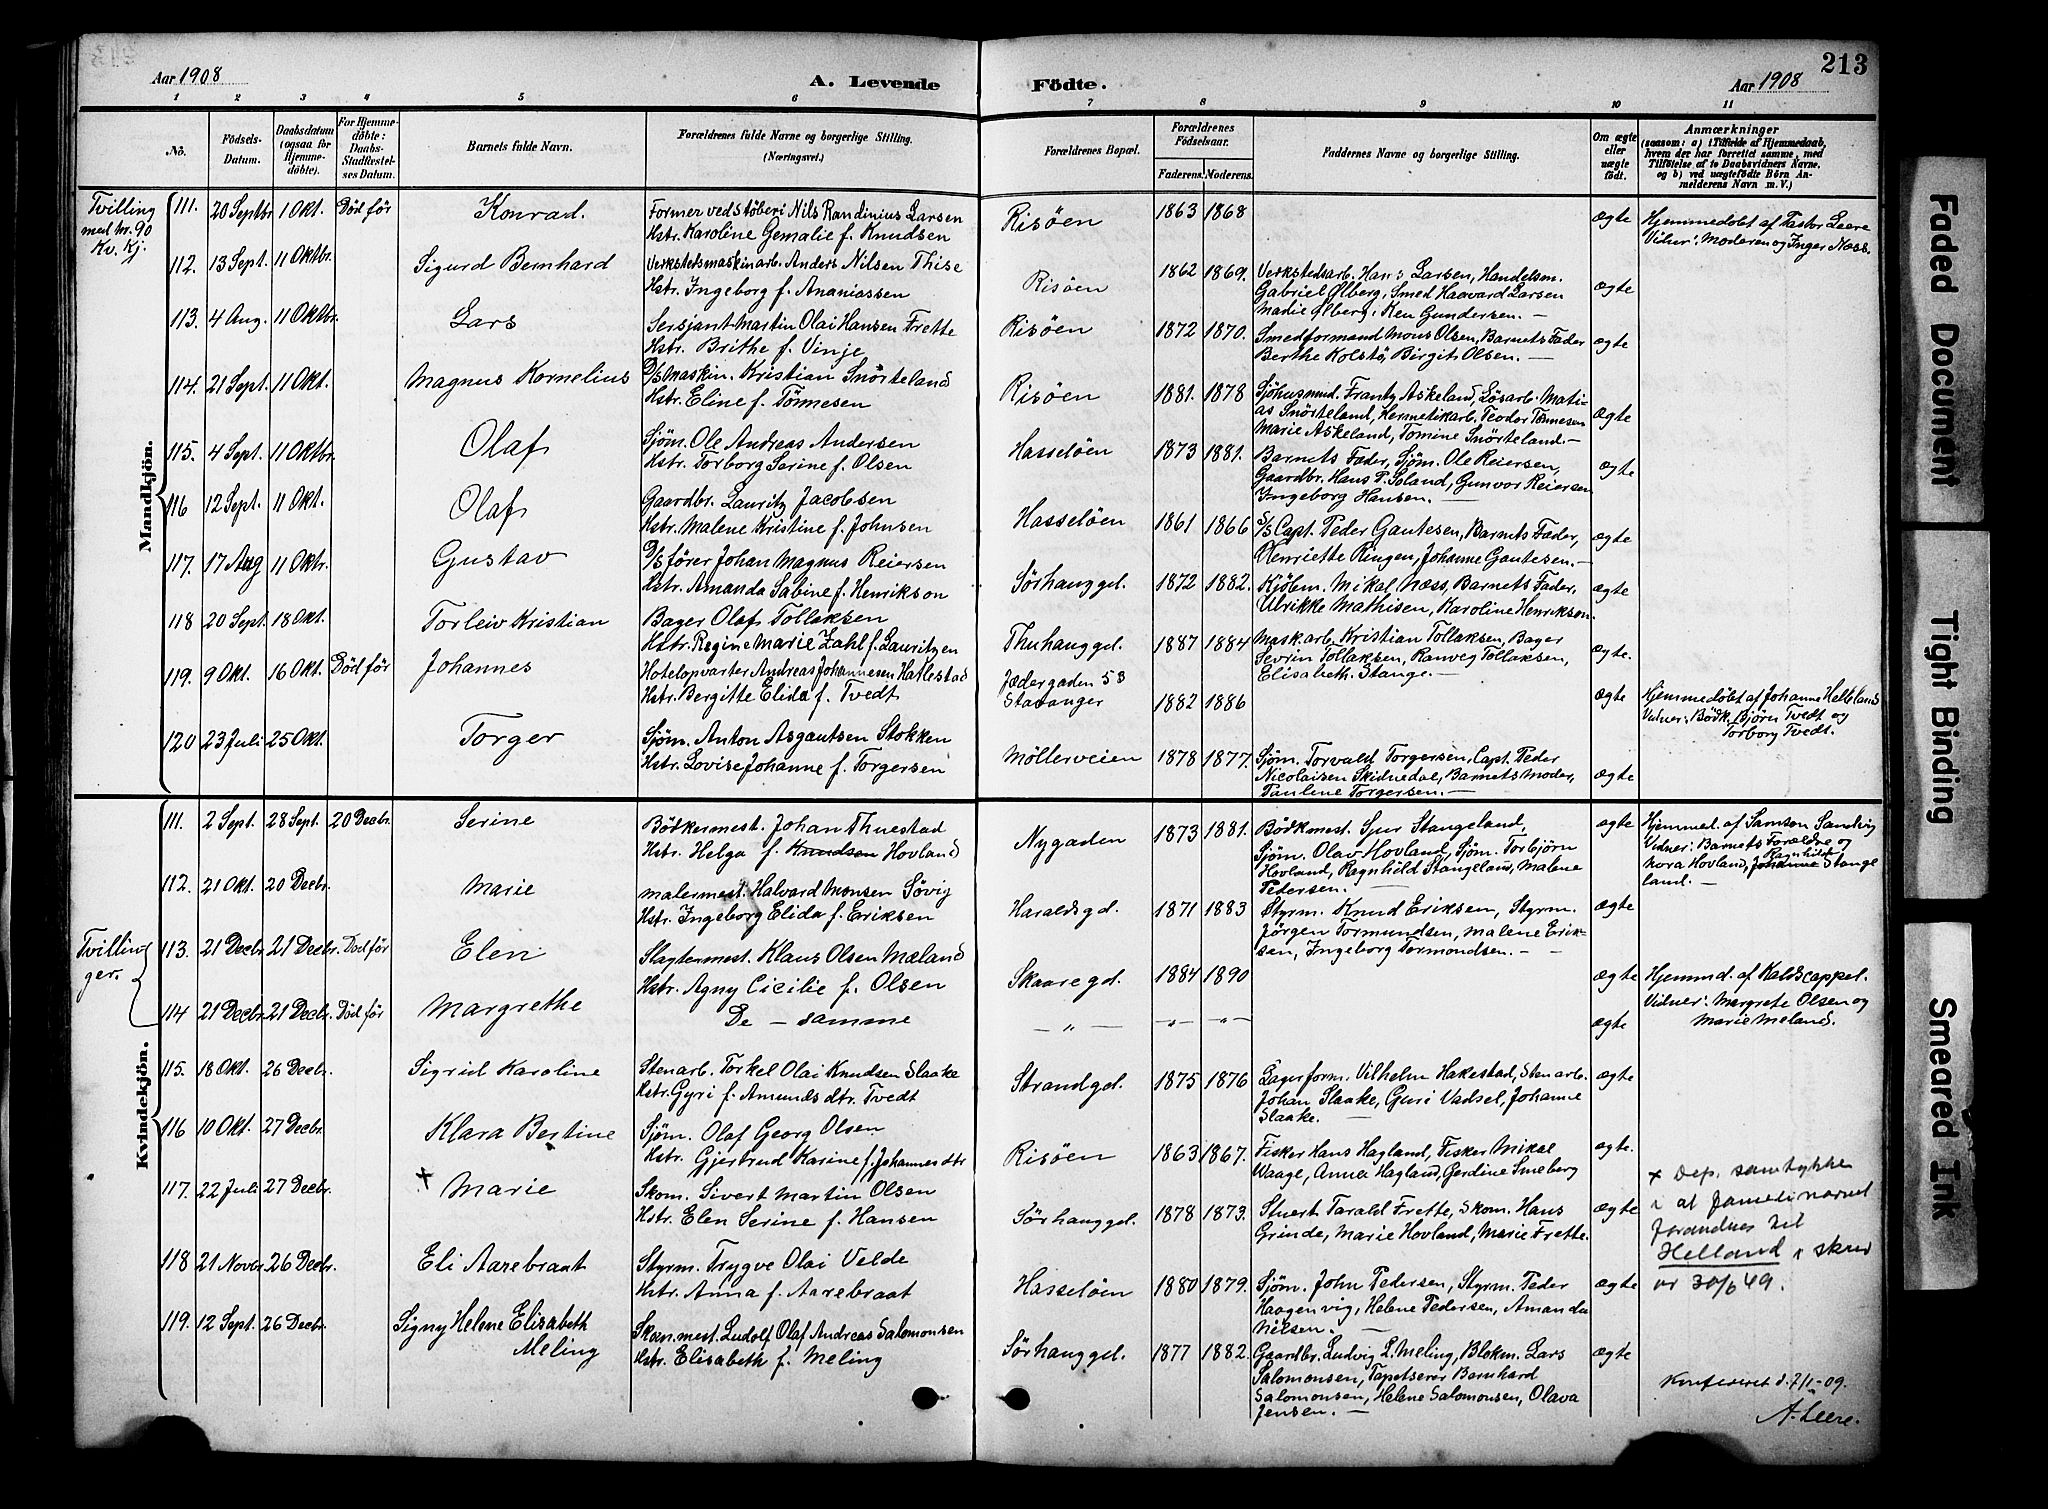 Aar 1908
A. Levende
Födte.
Aar 1908
213
1 2 3 4 5 6 7 8 9 10 11
Nō.
Födsels-Datum.
Daabsdatum (ogsaa for Hjemmedöbte).
For Hjemmedöbte: Daabs-Stadfæstelses Datum.
Barnets fulde Navn.
Forældrenes fulde Navne og borgerlige Stilling. (Næringsvei.)
Forældrenes Bopæl.
Forældrenes Födselsaar.
Faderens. Moderens.
Faddernes Navne og borgerlige Stilling.
Om ægte eller uægte født.
Anmærkninger (saasom: a) i Tilfælde af Hjemmedaab, hvem der har forrettet samme, med Tilføielse af to Daabsvidners Navne. og b) ved uægtefödte Börn Anmelderens Navn m. V.)
Mandkjön.
Tvilling
med nr. 90
Kv. Kj.
111. 20 Septbr 1 Okt. Död før Konrad. Former ved Støberi Nils Randinius Larsen Risöen 1863 1868 ægte Hjemmedöbt af Pastor Leere
Hstr. Karoline Gemalie f. Knudsen Vidner: Moderen og Inger Næss.
112. 13 Sept. 11 Oktbr. Sigurd Bernhard Verkstedsmaskinarb. Anders Nilsen Thise Risöen 1862 1869. Verkstedsarb. Hans Larsen, Handelsm. ægte
Hstr. Ingeborg f. Ananiassen Gabriel Ølberg, Smed Haavard Larsen
Madie Ølberg, Ken Gundersen.
113. 4 Aug. 11 Oktbr. Lars Sersjant Martin Olai Hansen Frette Risöen 1872 1870. Smedformand Mons Olsen, Barnets Fader ægte
Hstr. Brithe f. Vinje Berthe Kolstö, Birgit Olsen.
114. 21 Sept. 11 Okt. Magnus Kornelius D/S Maskin. Kristian Snörteland Risöen 1881. 1878 Sjöhusmnd. Frantz Askeland, Lösarb. Mati- ægte
Hstr. Eline f. Tönnesen as Snörteland, Hermetikarb. Teodor Tönnesen
Marie Askeland, Tomine Snörteland.
115. 4 Sept. 11 Oktbr. Olaf Sjöm. Ole Andreas Andersen Hasselöen 1873 1881. Barnets Fader, Sjöm. Ole Reiersen, ægte
Hstr. Torborg Serine f. Olsen Gaardbr. Hans P. Soland, Gunvor Reiersen
Ingeborg Hansen.
116 12 Sept. 11 Okt. Olaf Gaardbr. Lauritz Jacobsen Hasselöen 1861 1866 S/S Capt. Peder Gautesen, Barnets Fader, ægte
Hstr. Malene Kristine f. Johnsen Henriette Ringen, Johanne Gautesen.
117. 17 Aug 11 Oktr. Gustav D/S fører Johan Magnus Reiersen Sörhauggd. 1872 1882. Kjöbm. Mikal Næss, Barnets Fader, ægte
Hstr. Amanda Sabine f. Henrikson Ulrikke Mathisen, Karoline Henrikson.
118 20 Sept 18 Okt. Torleiv Kristian Bager Olaf Tollaksen Thuhauggd. 1887 1884 Maskarb. Kristian Tollaksen, Bager ægte.
Hstr. Regine Marie Zahl f. Lauritzen Sevrin Tollaksen, Ranveg Tollaksen,
Elisabeth Stange.
119. 9 Okt. 16 Okt Död før Johannes Hotelopvarter Andreas Johannesen Hatlestad Jædergaden 53 1882 1886 ægte Hjemmedöbt af Johanne Helleland
Hstr. Bergitte Elida f. Tvedt Stavanger Vidner: Bödk. Bjørn Tvedt og
Torborg Tvedt.
120 23 Juli 25 Okt. Torger Sjöm. Anton Asgautsen Stokken Möllerveien 1878 1877. Sjöm. Torvald Torgersen, Capt. Peder ægte
Hstr. Lovise Johanne f. Torgersen Nicolaisen Skidnedal, Barnets Moder,
Pauline Torgersen.
Kvindekjön.
111. 2 Sept. 28 Sept. 20 Decbr. Serine Bödkermest. Johan Thuestad Nygaden 1873 1881. Bödkmest. Sjur Stangeland, ægte Hjemmed. af Samson Sandvig
Hstr. Helga f. Knudsen Hovland Sjöm. Olav Hovland, Sjöm. Torbjörn Vidner: Barnets Forældre og
Hovland, Ragnhild Stangeland, Malene Nora Hovland, Johanne Ragnhild Stange
Pedersen. land.
112. 21 Okt. 20 Decbr. Marie Malermest. Halvard Monsen Sövig Haraldsgd. 1871 1883 Styrm. Knud Eriksen, Styrm. ægte
Hstr. Ingeborg Elida f. Eriksen Jörgen Tormundsen, Malene Erik-
sen, Ingeborg Tormondsen.
Tvillin
ger.
113. 21 Decbr 21 Decbr. Död før Elen Slagtermest. Klaus Olsen Mæland Skaaregd. 1884 1890 ægte Hjemmd. af Kaldscappel.
Hstr. Agny Cicilie f. Olsen Vidner: Margrete Olsen og
114 21 Decbr. 21 Decbr. Död før Margrethe De — samme — " — — " — — " — ægte Marie Meland.
115. 18 Okt. 26 Decbr. Sigrid Karoline Stenarb. Torkel Olai Knudsen Slaake Strandgd. 1875 1876 Lagerform. Vilhelm Hakestad, Stenarb. ægte
Hstr. Gyri f. Amundsdtr. Tvedt Johan Slaake, Guri Vadsel, Johanne
Slaake.
116 10 Okt. 27 Decbr. Klara Bertine Sjöm. Olaf Georg Olsen Risöen 1863 1867. Fisker Hans Hagland, Fisker Mikal ægte.
Hstr. Gjertrud Karine f. Johannesdtr Waage, Anna Hagland, Gerdine Smeberg
117. 22 Juli 27 Decbr. × Marie Skom. Sivert Martin Olsen Sörhauggd. 1878 1873. Stuert Tarald Frette, Skom. Hans ægte
Hstr. Elen Serine f. Hansen Grinde, Marie Hovland, Marie Frette.
× Dep. samtykke
i at familienavnet
forandres til
Helland i skriv
av 30/6 49.
118 21 Novbr 26 Decbr. Eli Aarebraat Styrm. Trygve Olai Velde Hasselöen 1880 1879. Sjöm. John Pedersen, Styrm. Peder ægte
Hstr. Anna f. Aarebraat Haagenvig, Helene Pedersen, Amanda
Nilsen.
119. 12 Sept. 26 Decbr. Signy Helene Elisabeth Meling Skom.mest. Ludolf Olaf Andreas Salomonsen Sörhauggd. 1877 1882. Gaardbr. Ludvig L. Meling, Blokm. Lars ægte
Hstr. Elisabeth f. Meling Salomonsen, Tapetserer Bernhard
Salomonsen, Helene Salomonsen, Olava
Jensen.
Konfereret d. 7/1-09.
A. Leere.
Faded Document
Tight Binding
Smeared Ink